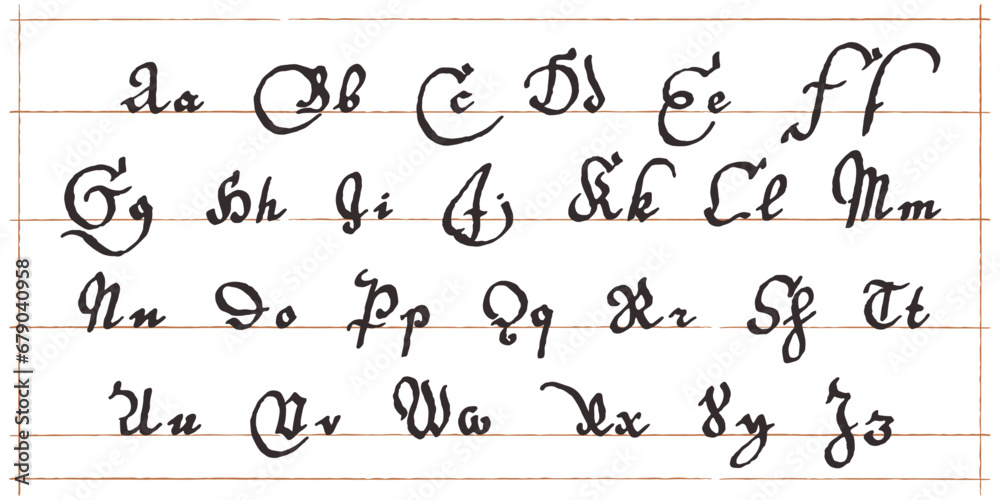 Aa Bb Cc Dd Ee Ff
Gg Hh Ii Jj Kk Ll Mm
Nn Oo Pp Qq Rr Ss Tt
Uu Vv Ww Xx Yy Zz
Adobe Stock | #679040958